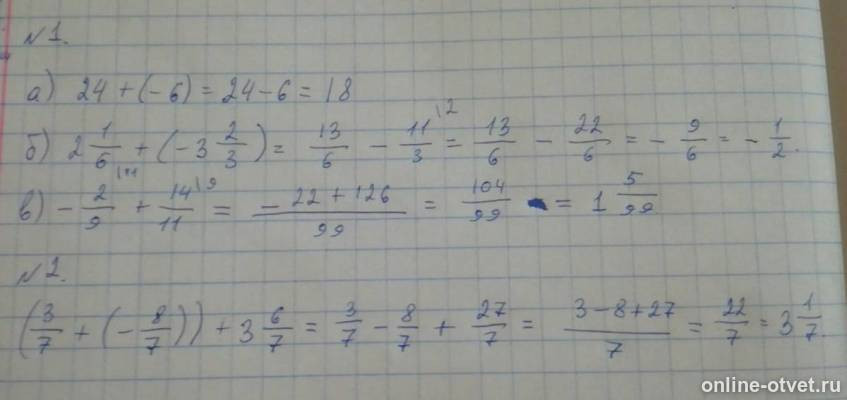 №1.
а) 24 + (-6) = 24-6 = 18
б) 2 1/6 + (-3 2/3) = 13/6 - 11/3 \2 = 13/6 - 22/6 = - 9/6 = - 1/2.
в) - 2/9 \11 + 14/11 \9 = (-22 + 126)/99 = 104/99 = 1 5/99
№2.
(3/7 + (- 8/7)) + 3 6/7 = 3/7 - 8/7 + 27/7 = (3-8+27)/7 = 22/7 = 3 1/7.
online-otvet.ru